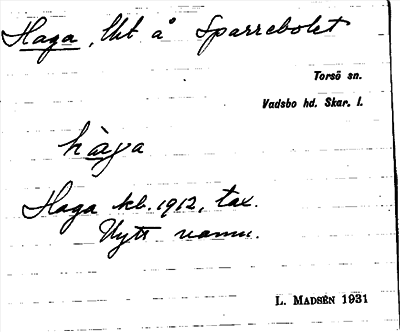 Haga, lht å Sparrebolet
Torsö sn.
Vadsbo hd. Skar. l.
hàga
Haga kb. 1912, tax.
Nytt namn.
L. MADSÉN 1931